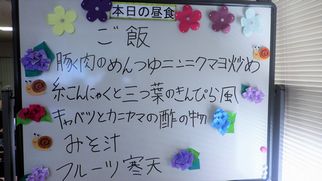 本日の昼食
ご飯
豚肉のめんつゆニンニクマヨ炒め
糸こんにゃくと三つ葉のきんぴら風
キャベツとカニカマの酢の物
みそ汁
フルーツ寒天